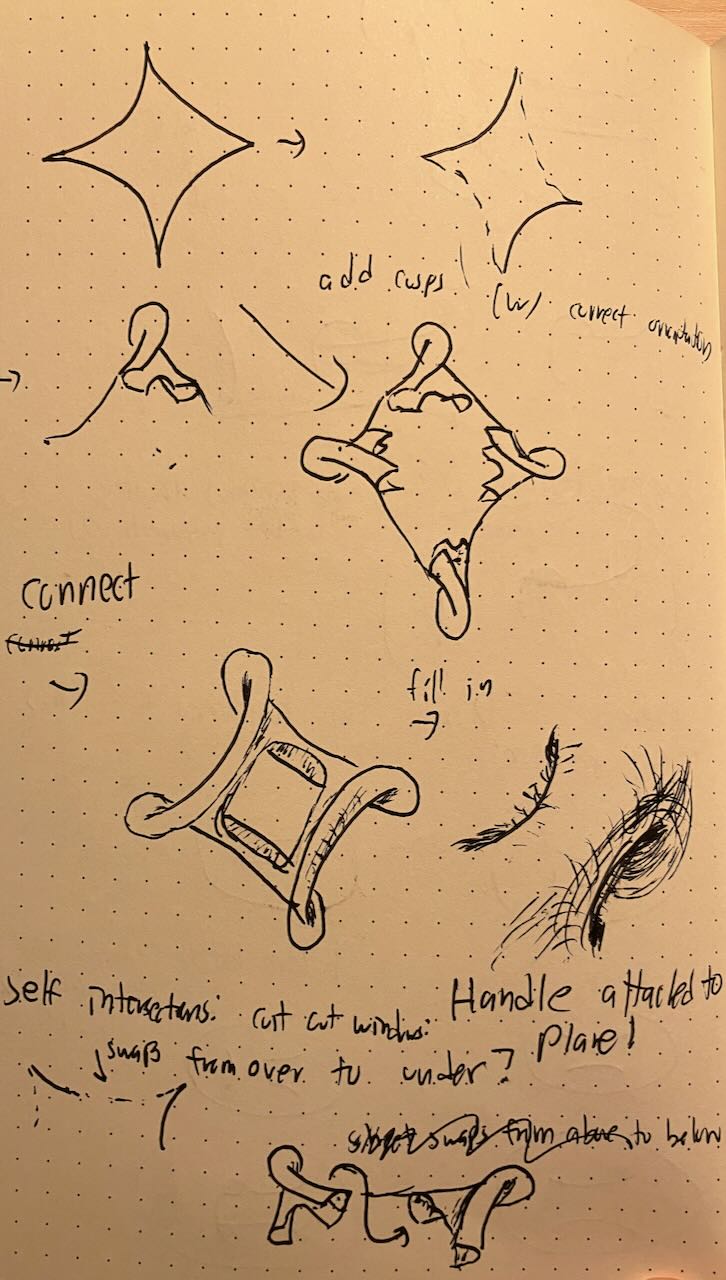 add cusps
correct orientation
connect
fill in
Self intersections: cut out windows:
swaps from over to under?
Handle attached to
plane!
swaps from above to below